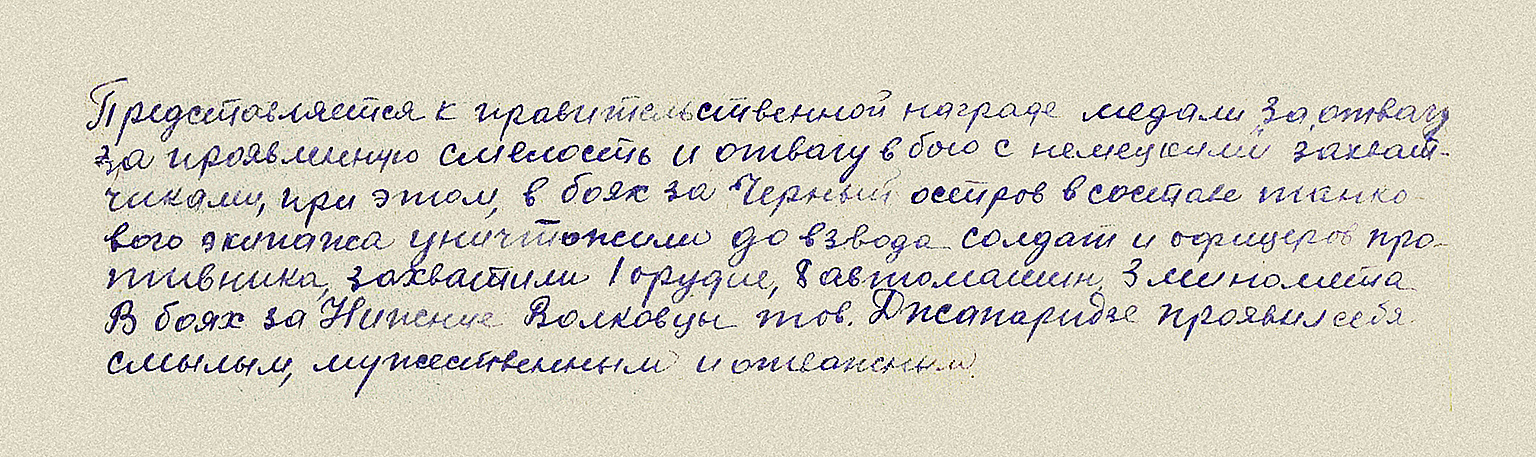 Представляется к правительственной награде медали „За отвагу
за проявленную смелость и отвагу в бою с немецкими захват-
чиками, при этом, в боях за Черный остров в составе танко-
вого экипажа уничтожили до взвода солдат и офицеров про-
тивника, захватили 1 орудие, 8 автомашин, 3 миномета
В боях за Нижние Волковцы тов. Джапаридзе проявил себя
смылым, мужественным и отважным.